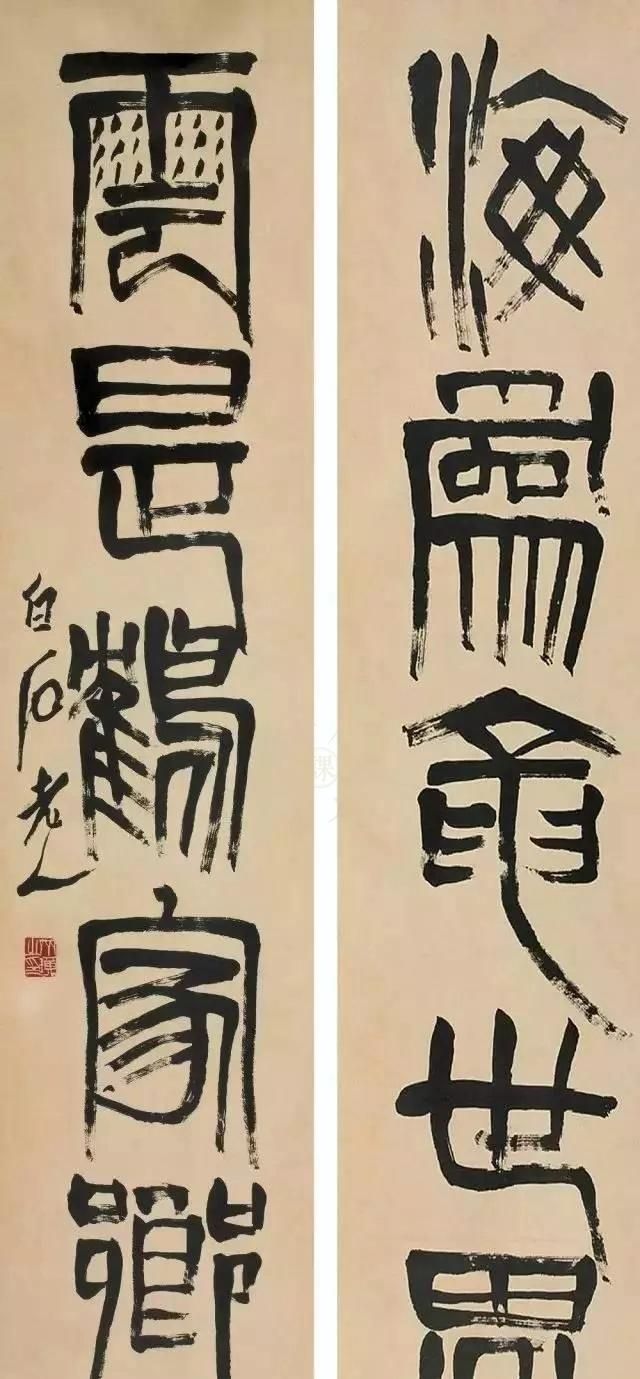 海為龜世界
雲是鶴家鄉
白石老人